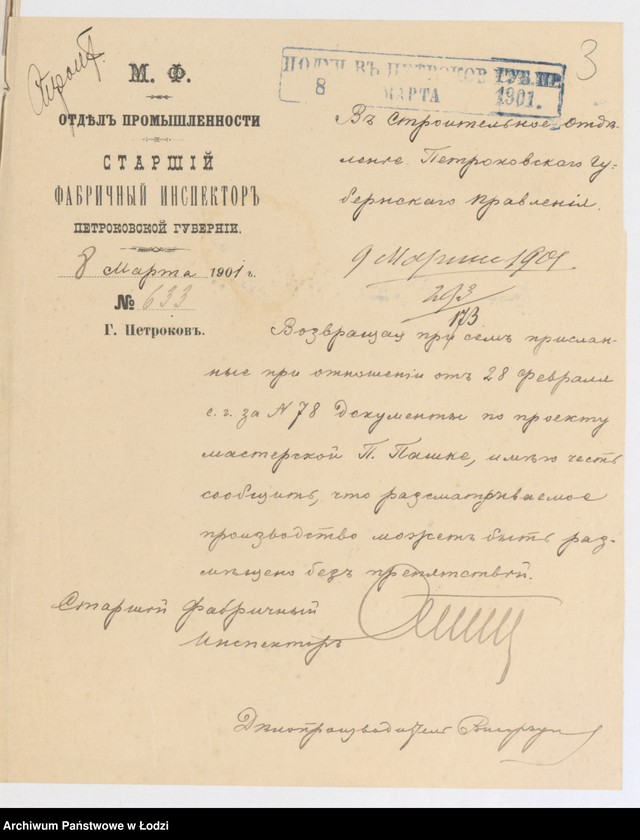 М. Ф.
ОТДѢЛЪ ПРОМЫШЛЕННОСТИ
СТАРШІЙ
ФАБРИЧНЫЙ ИНСПЕКТОРЪ
ПЕТРОКОВСКОЙ ГУБЕРНІИ.
8 Марта 1901 г.
№ 633
Г. Петроковъ.
ПОЛУЧ. ВЪ ПЕТРОКОВ. ГУБ. ПР.
8 МАРТА 1901.
3
Въ Строительное Отдѣ-
леніе Петроковскаго Гу-
бернскаго Правленія.
9 Марта 1901
293
173
Возвращая при семъ прислан-
ные при отношеніи отъ 28 Февраля
с. г. за N 78 документы по проекту
мастерской П. Пашке, имѣю честь
сообщить, что разсматриваемое
производство можетъ быть раз-
мѣщено безъ препятствій.
Старшій Фабричный
Инспекторъ
Дѣлопроизводитель
Archiwum Państwowe w Łodzi